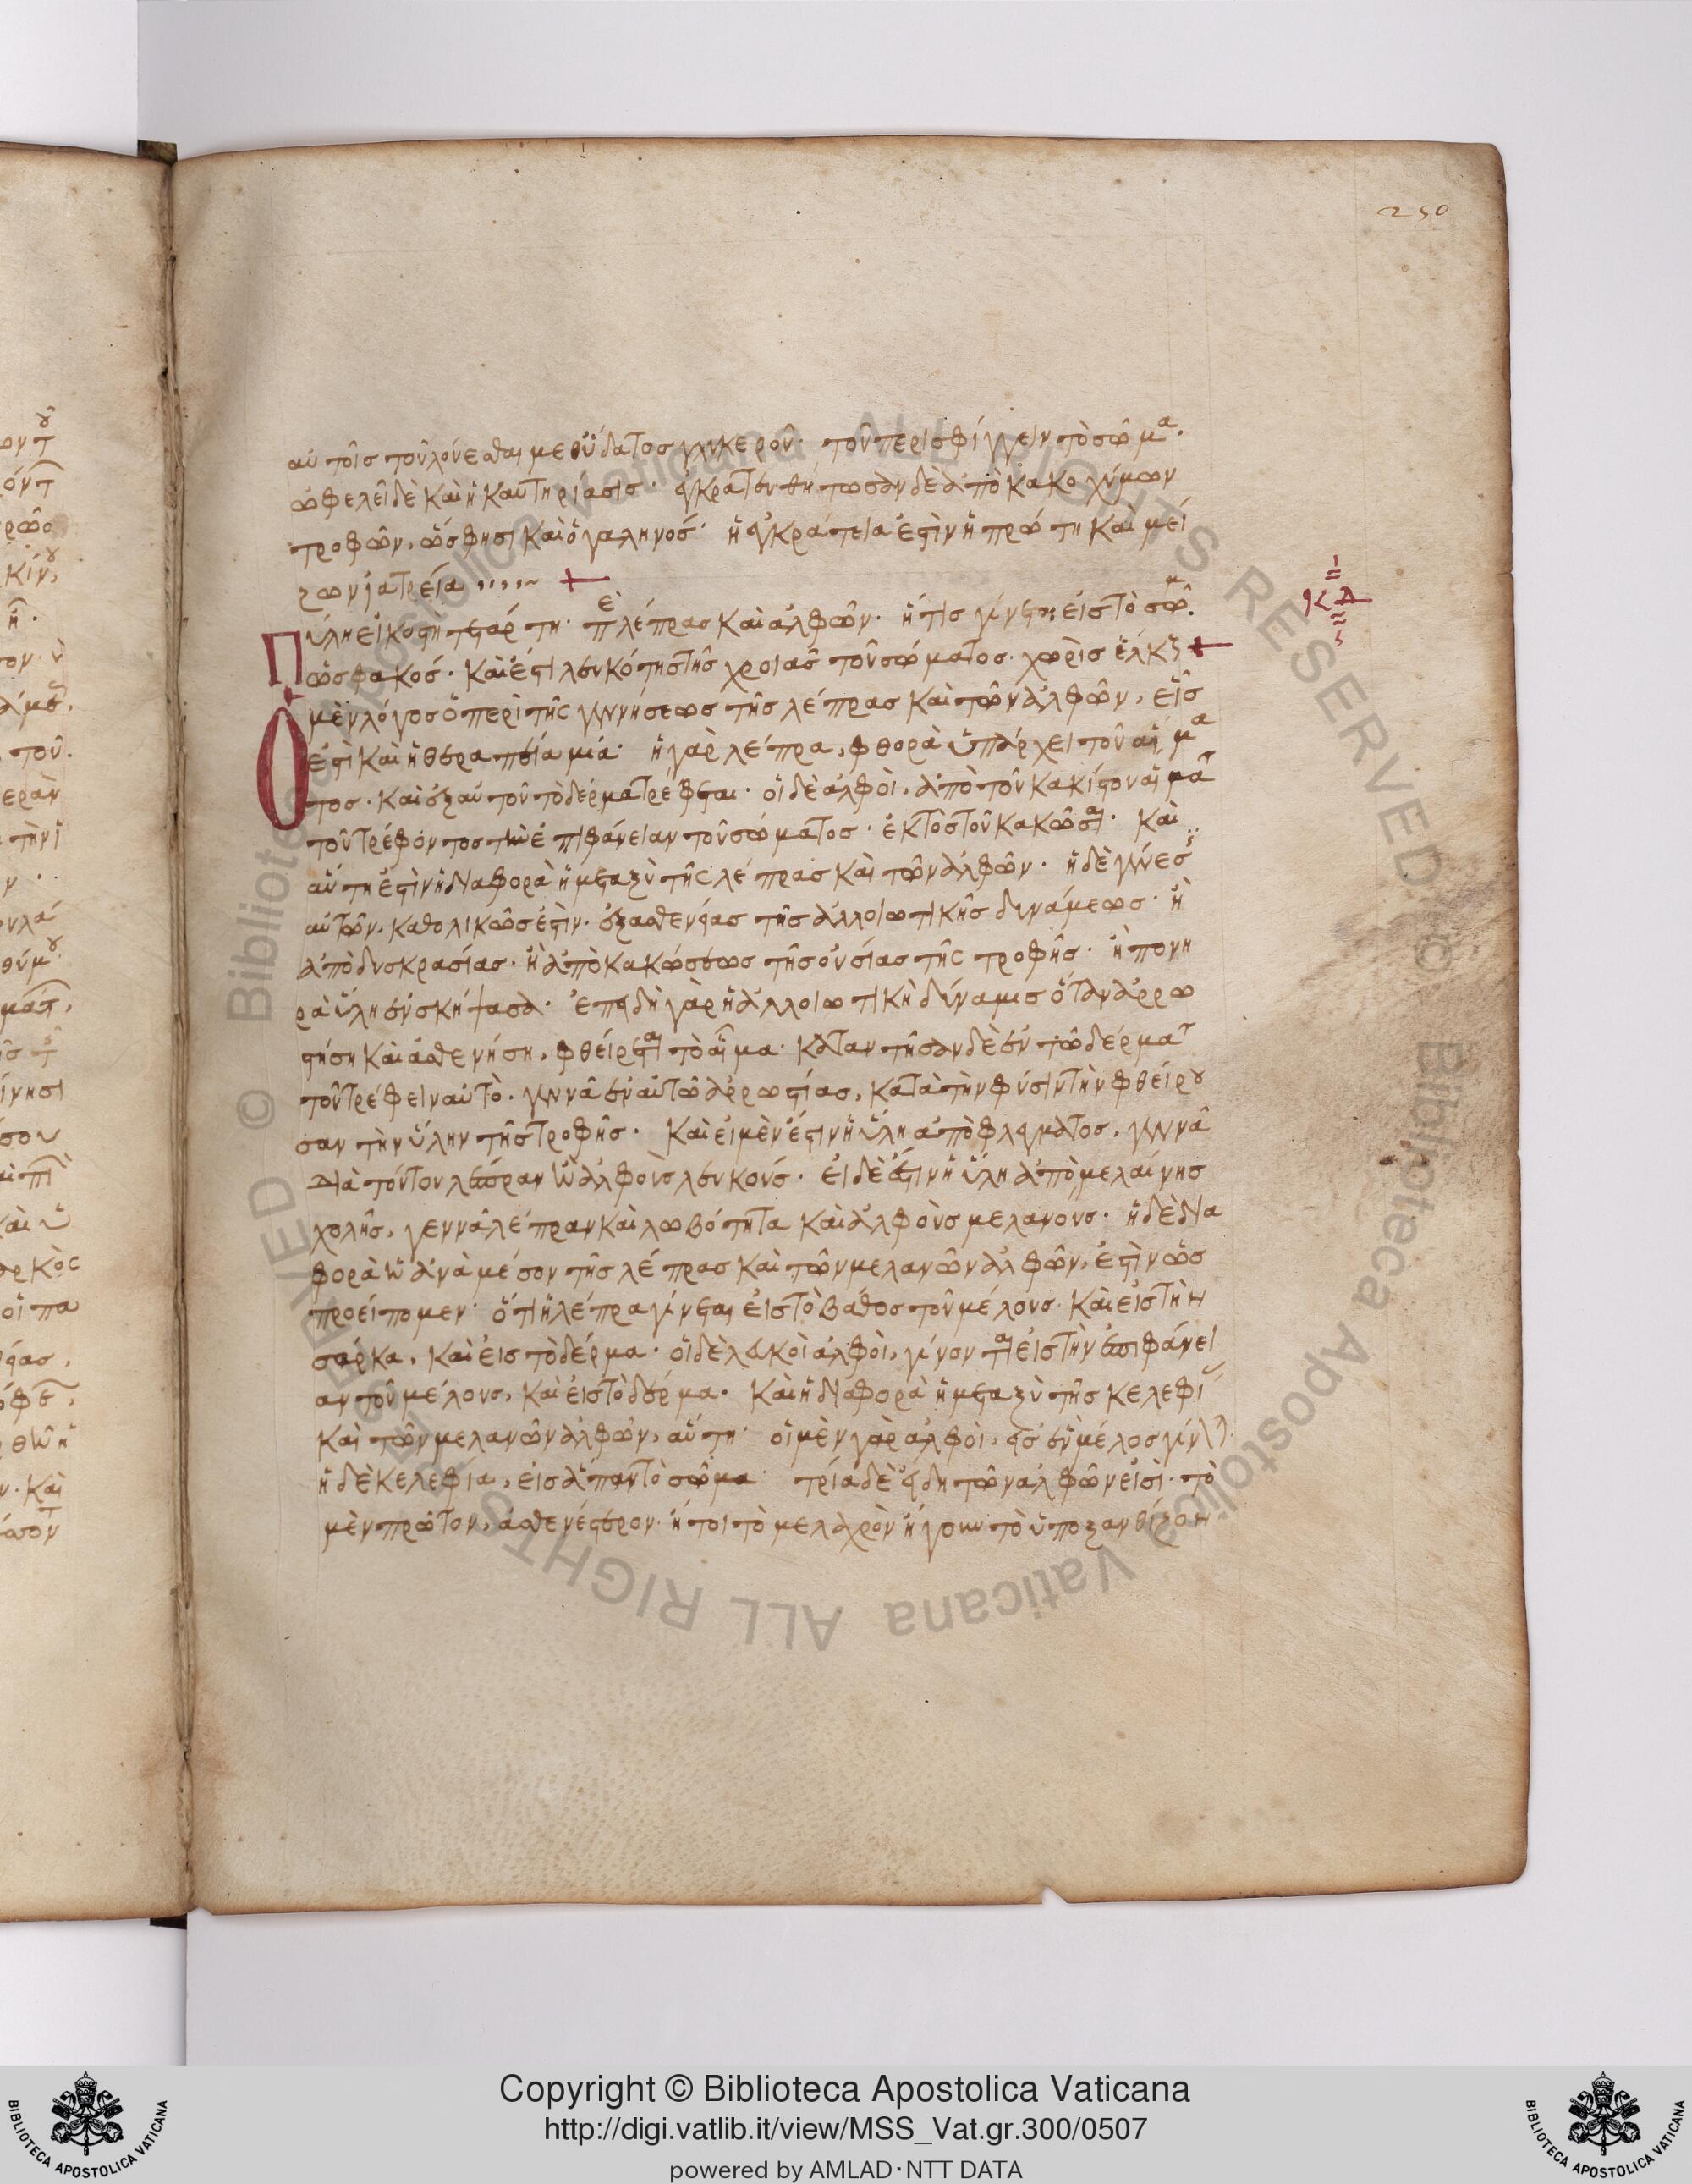 250
αὐτοῖς τοῦ λούεσθαι μεθ ὕδατος γλυκεροῦ· τοῦ περισφίγγειν τὸ σῶμα.
ὠφελεῖ δὲ καὶ ἡ καυτηρίασις· ἐγκρατευθήτωσαν δὲ ἀπὸ κακοχύμων
τροφῶν, ὥς φησι καὶ ὁ γαληνός· ἡ ἐγκράτεια ἐστὶν ἡ πρώτη καὶ μεί
ζων ἰατρεία
Πύλη εἰκοστη τετάρτη· πε λέπρας καὶ ἀλφῶν· ἥτις γίνεται εἰς τὸ σῶμ.
ὡς φακός· καὶ ἔστι λευκότης τῆς χροιᾶς τοῦ σώματος· χωρὶς ἕλκους
Ὁ μὲν λόγος ὁ περὶ τῆς γεννήσεως τῆς λέπρας καὶ τῶν ἀλφῶν, εἷς
ἐστὶ καὶ ἡ θεραπεία μία· ἡ γὰρ λέπρα, φθορὰ ὑπάρχει τοῦ αἵμα
τος· καὶ ἐξ αὐτοῦ τὸ δέρμα τρέφεται· οἱ δὲ ἀλφοὶ, ἀπὸ τοῦ κακίστου αἵματ
τοῦ τρέφοντος τὴν ἐπιφάνειαν τοῦ σώματος· ἐκτὸς τοῦ κακῶσαι· καὶ
αὕτη ἐστὶν ἡ διαφορὰ ἡ μεταξὺ τῆς λέπρας καὶ τῶν ἀλφῶν· ἡ δὲ γέννεσις
αὐτῶν, καθολικῶς ἐστὶν· ἐξ ἀσθενείας τῆς ἀλλοιωτικῆς δυνάμεως· ἢ
ἀπὸ δυσκρασίας· ἢ ἀπὸ κακώσεως τῆς οὐσίας τῆς τροφῆς· ἢ πονη
ρὰ ὕλη ἐνσκήψασα· ἐπειδὴ γὰρ ἡ ἀλλοιωτικὴ δύναμις ὅταν ἀρρω
στήση καὶ ἀσθενήση, φθείρεται τὸ αἷμα· κατανττῆσαν δὲ ἐν τῶ δέρματ
τοῦ τρέφειν αὐτὸ· γεννᾶ ἐν αὐτῶ ἀρρωστίας, κατὰ τὴν φύσιν τὴν φθείρου
σαν τὴν ὕλην τῆς τροφῆς· καὶ εἰ μὲν ἔστιν ἡ ὕλη ἀπὸ φλέγματος, γεννᾶ
διὰ τούτου λέπραν καὶ ἀλφοὺς λευκούς· εἰ δὲ ἔστιν ἡ ὕλη ἀπὸ μελαίνης
χολῆς, γεννᾶ λέπραν καὶ λωβότητα καὶ ἀλφοὺς μελανους· ἡ δὲ δια
φορὰ ἡ ἀνὰ μέσον τῆς λέπρας καὶ τῶν μελανῶν ἀλφῶν, ἐστὶν ὡς
προείπομεν· ὅτι ἡ λέπρα γίνεται εἰς τὸ βάθος τοῦ μέλους· καὶ εἰς τὴν
σάρκα, καὶ εἰς τὸ δέρμα· οἱ δὲ λευκοὶ ἀλφοὶ, γίνονται εἰς τὴν ἐπιφάνει
αν τοῦ μέλους, καὶ εἰς τὸ δέρμα· καὶ ἡ διαφορὰ ἡ μεταξὺ τῆς κελεφί
καὶ τῶν μελανῶν ἀλφῶν, αὕτη· οἱ μὲν γὰρ ἀλφοὶ, εἰς ἓν μέλος γίν
ἡ δὲ κελεφία, εἰς ἅπαν τὸ σῶμα· τρία δὲ εἴδη τῶν ἀλφῶν εἰσὶ· τὸ
μὲν πρῶτον, ἀσθενέστερον· ἤτοι τὸ μελαχρὸν ἤγουν τὸ ὑποξανθίζον
Copyright © Biblioteca Apostolica Vaticana
http://digi.vatlib.it/view/MSS_Vat.gr.300/0507
powered by AMLAD·NTT DATA
BIBLIOTECA APOSTOLICA VATICANA
BIBLIOTECA APOSTOLICA VATICANA